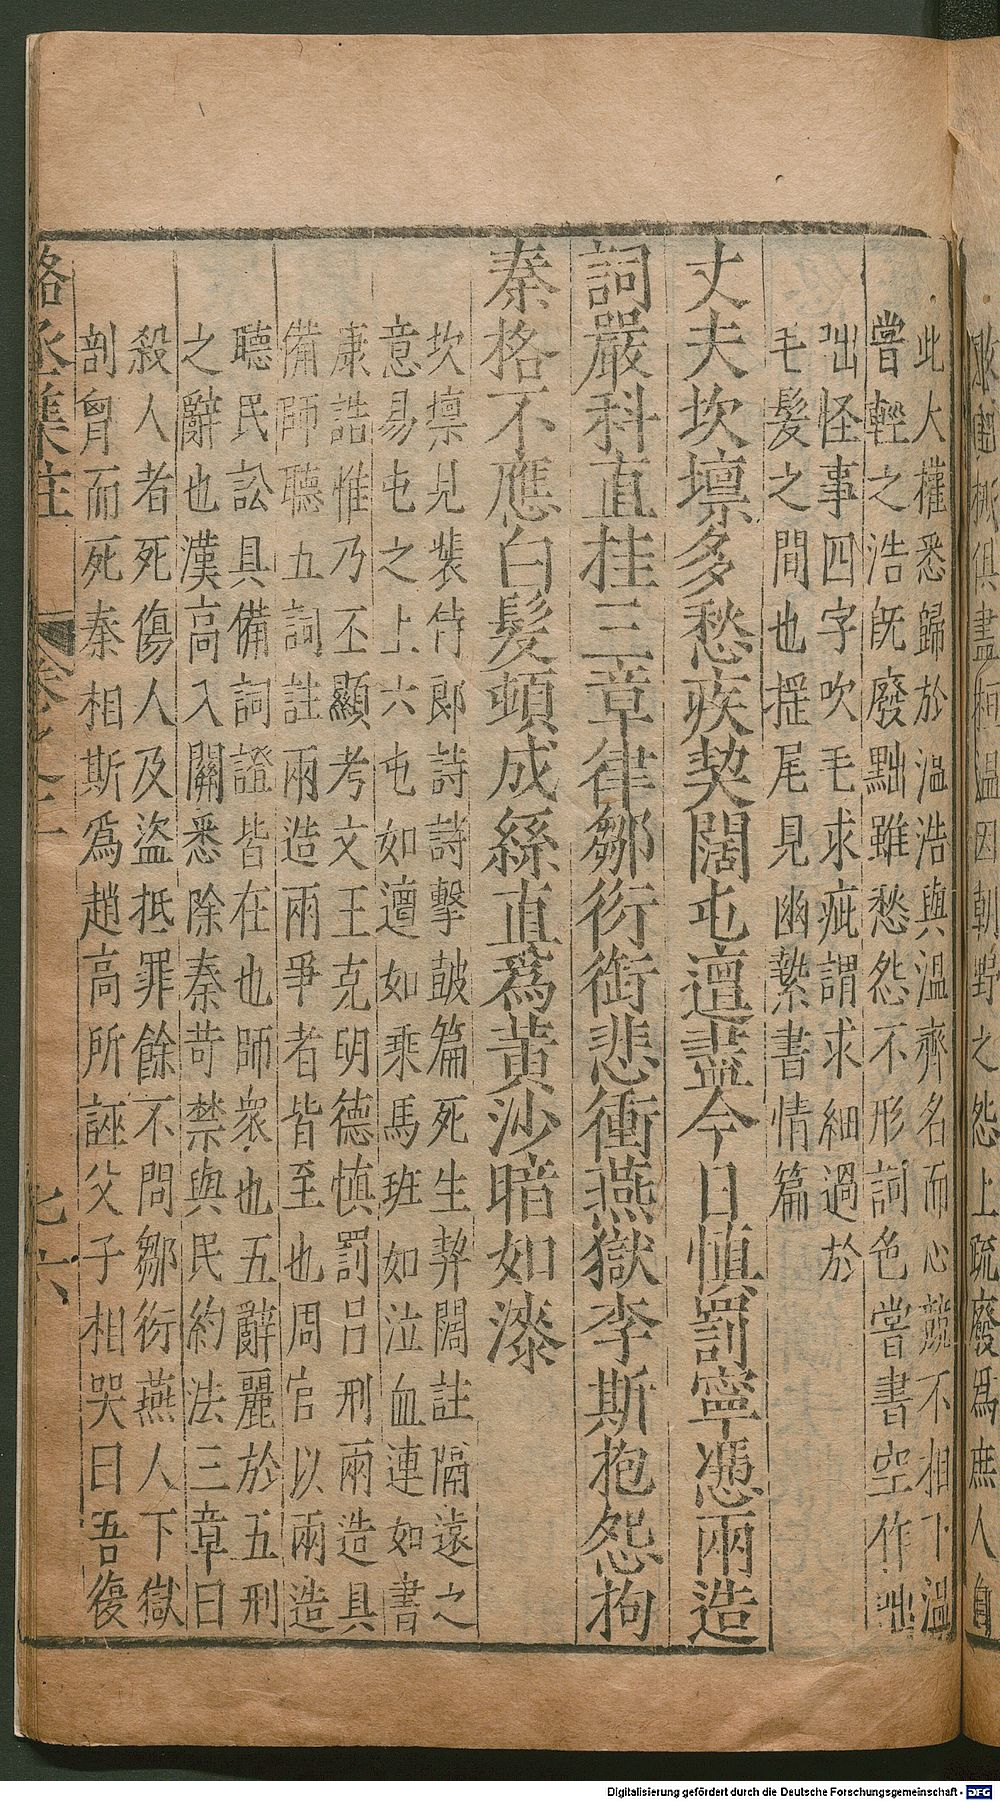 敗績械俱盡桓溫因朝野之怨上疏廢爲庶人自
此大權悉歸於温浩與温齊名而心競不相下温
嘗輕之浩旣廢黜雖愁怨不形詞色嘗書空作咄
咄怪事四字吹毛求疵謂求細過於
毛髮之間也揺尾見幽縶書情篇
丈夫坎壈多愁疾契闊屯邅盡今日慎罰寧憑兩造
詞嚴科直挂三章律鄒衍銜悲衝燕獄李斯抱怨拘
秦格不應白髮頓成絲直爲黃沙暗如漆
坎壈見裴侍郎詩詩擊皷篇死生契闊註隔遠之
意易屯之上六屯如邅如乘馬班如泣血連如書
康誥惟乃丕顯考文王克明德慎罰呂刑兩造具
備師聽五詞註兩造兩爭者皆至也周官以兩造
聽民訟具備詞證皆在也師衆也五辭麗於五刑
之辭也漢高入關悉除秦苛禁與民約法三章曰
殺人者死傷人及盜抵罪餘不問鄒衍燕人下獄
剖胷而死秦相斯爲趙高所誣父子相哭曰吾復
駱丞集註 卷之二 七六
Digitalisierung gefördert durch die Deutsche Forschungsgemeinschaft - DFG